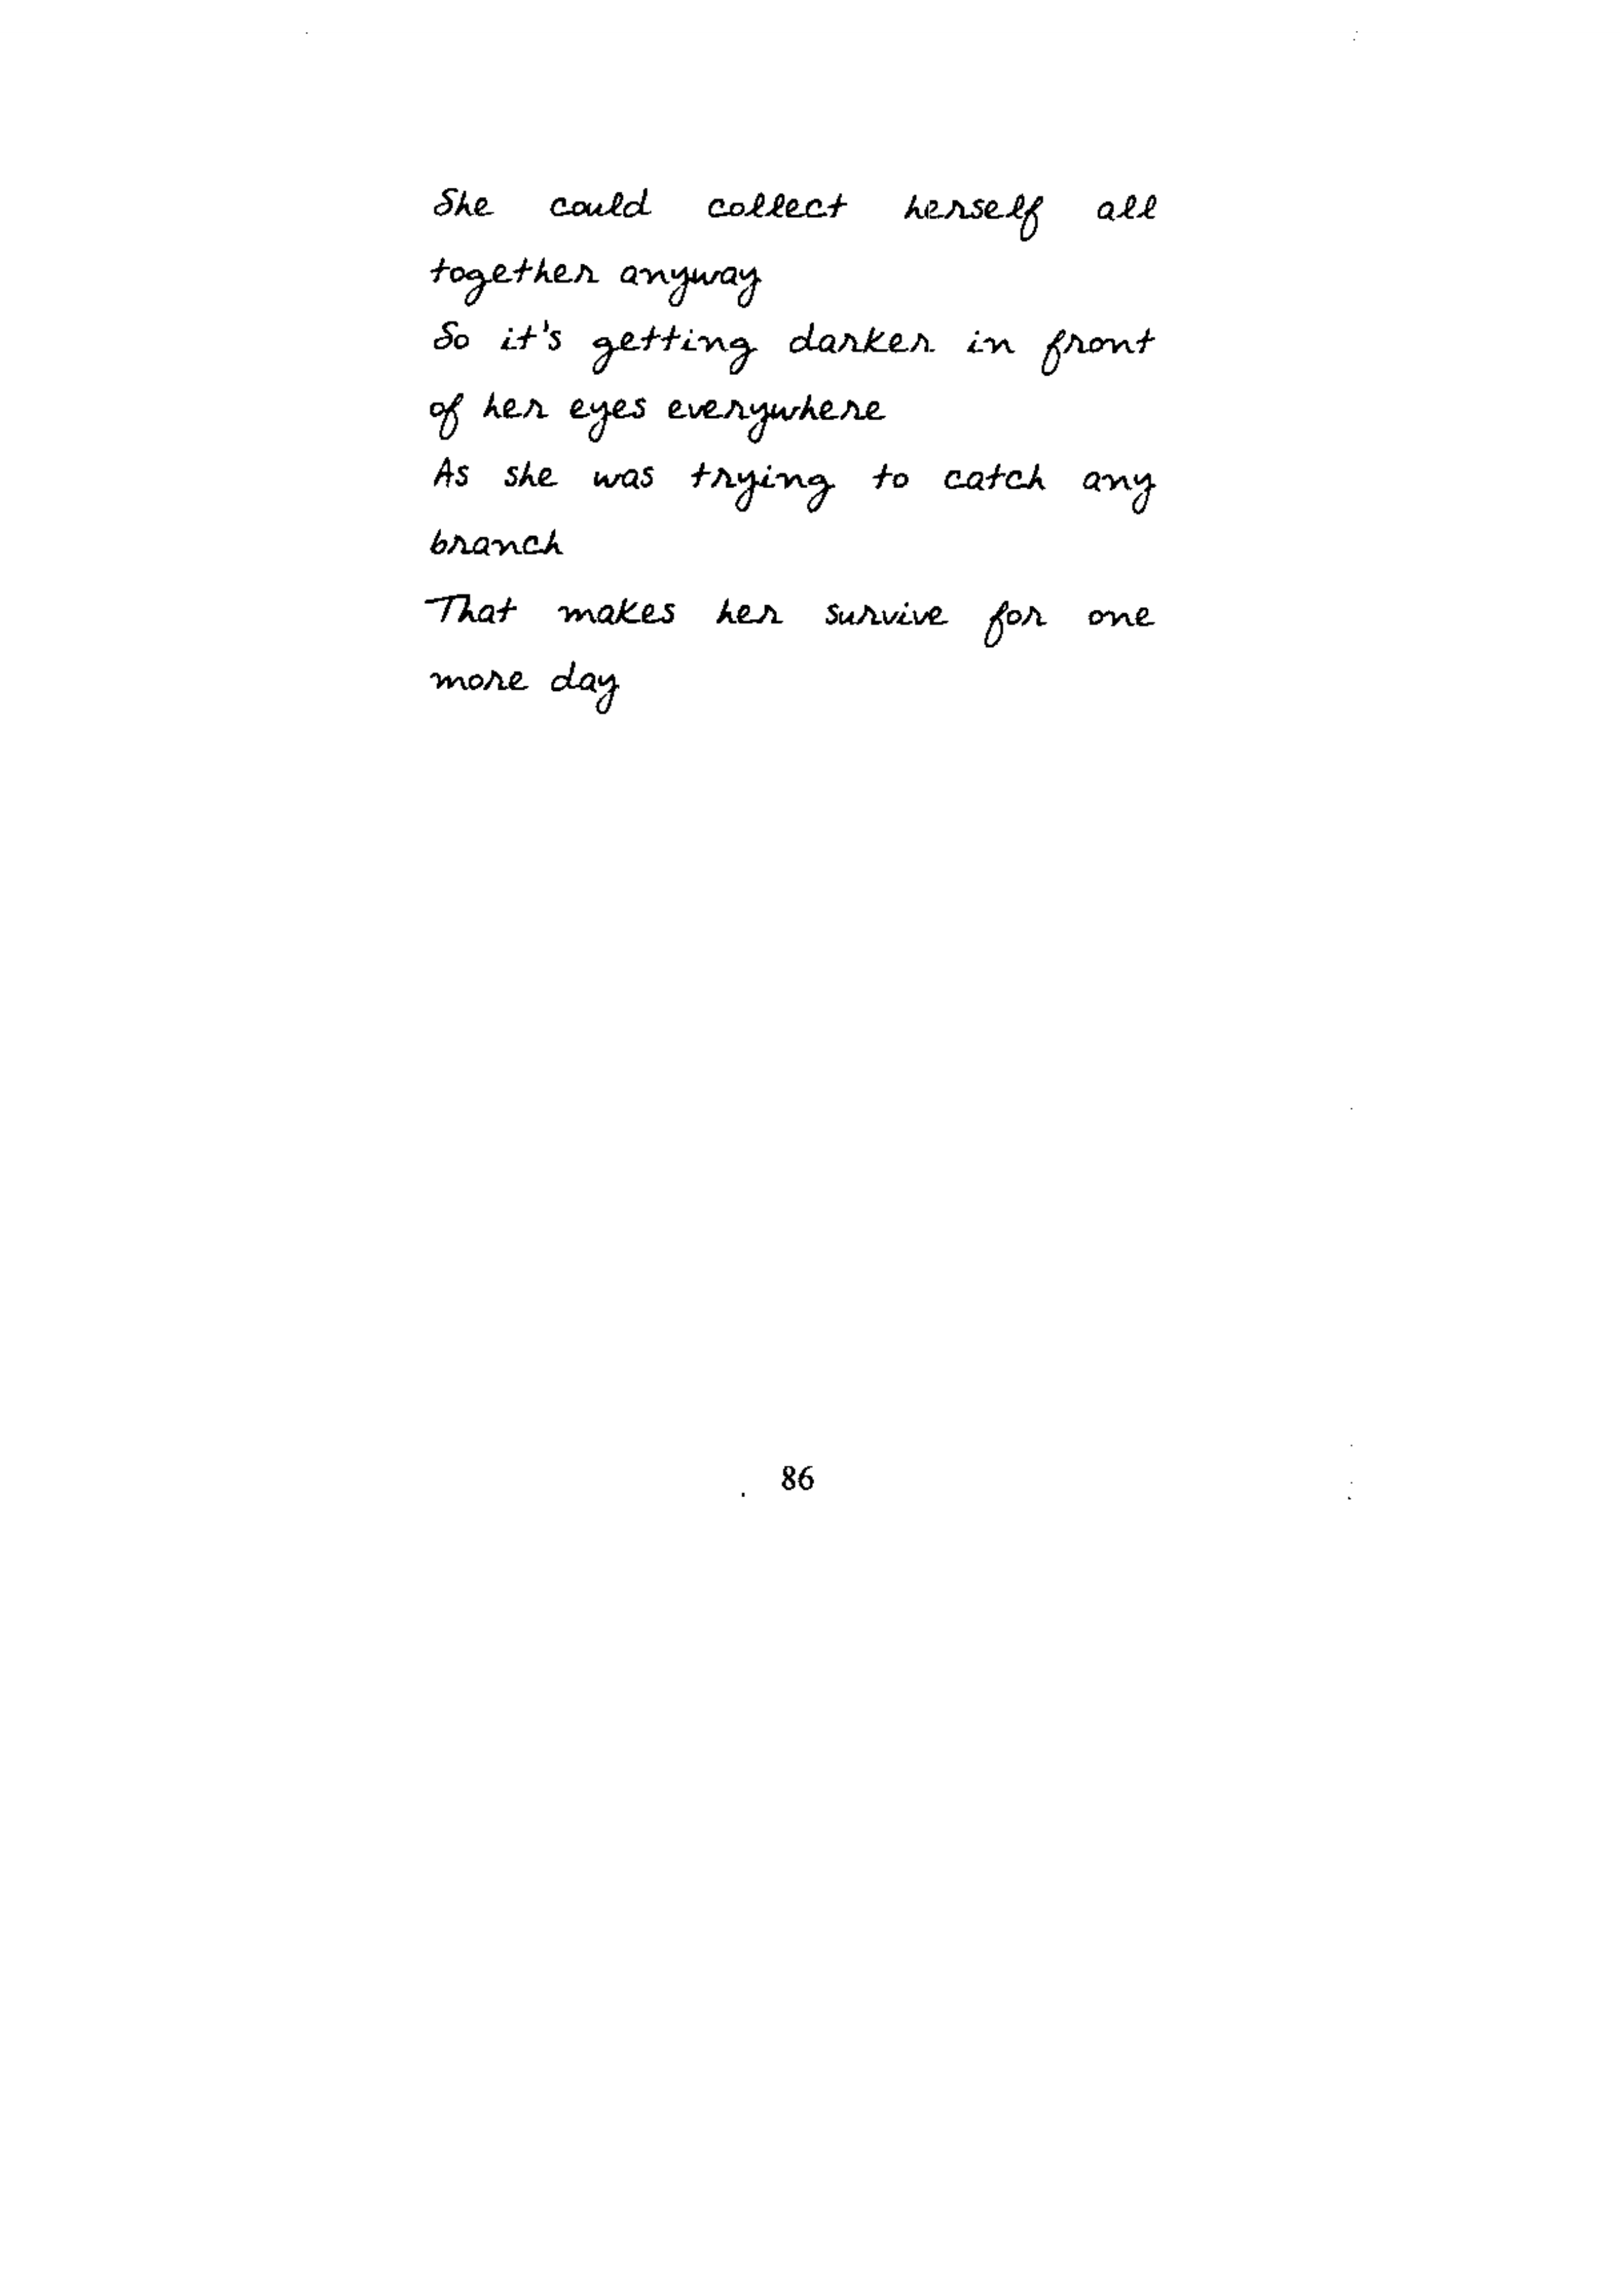 She could collect herself all
together anyway
So it's getting darker in front
of her eyes everywhere
As she was trying to catch any
branch
That makes her survive for one
more day
86